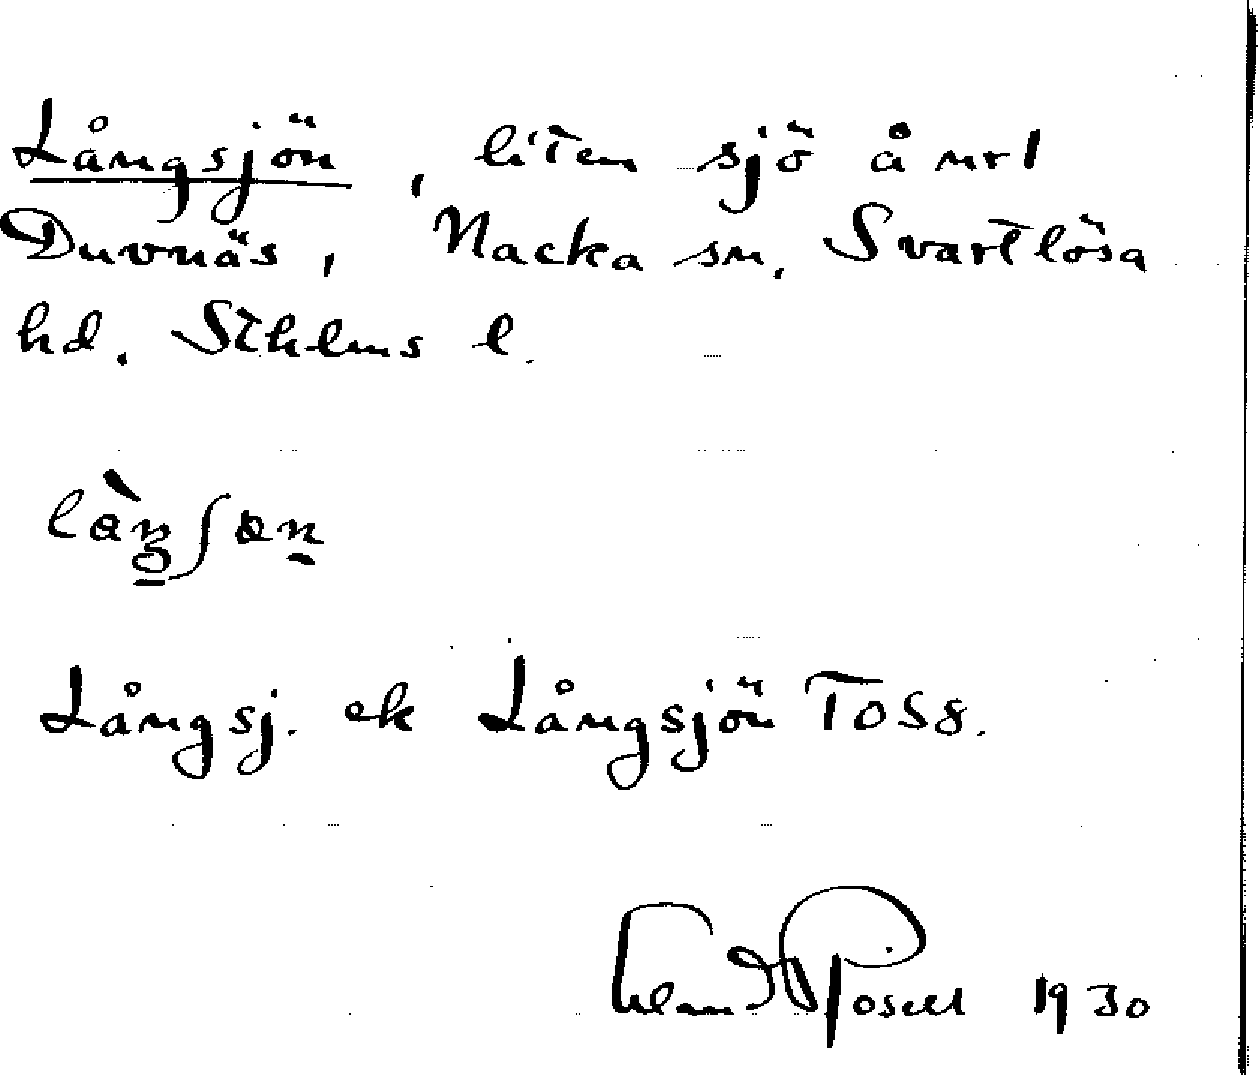 Långsjön, liten sjö å nr 1
Duvnäs, Nacka sn, Svartlösa
hd. Sthlms l.
Långsj. ek Långsjön T0S8.
1930